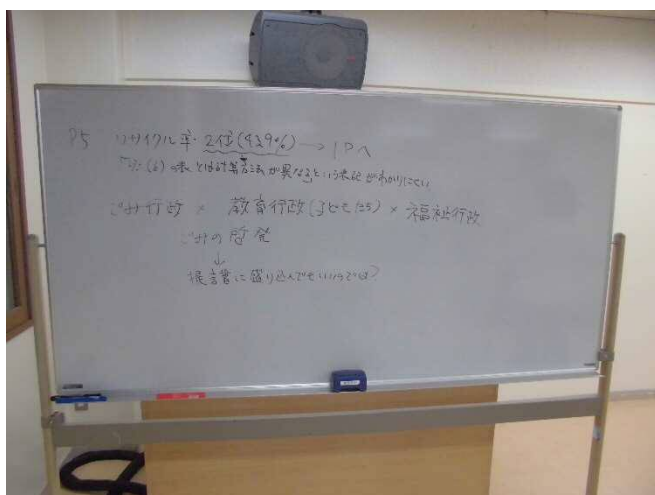 P5 リサイクル率 2位(43.9%) → 1Pへ
の表とは計算方法が異なるという表記がわかりにくい
ごみ行政 × 教育行政(子どもたち) × 福祉行政
ごみの啓発
↓
提言書に盛り込んでもいいのでは?